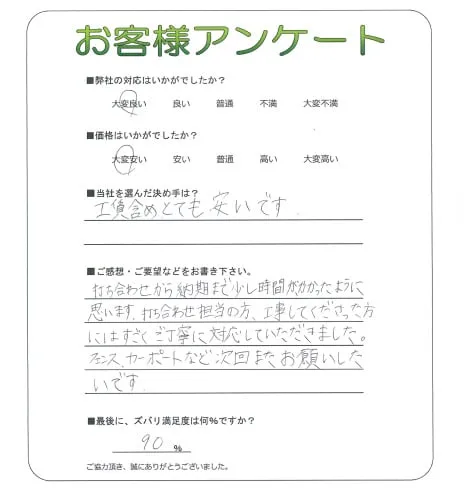 お客様アンケート
■弊社の対応はいかがでしたか?
大変良い 良い 普通 不満 大変不満
■価格はいかがでしたか?
大変安い 安い 普通 高い 大変高い
■当社を選んだ決め手は?
工賃含めとても安いです。
■ご感想・ご要望などをお書き下さい。
打ち合わせから納期まで少し時間がかかったように
思います。打ち合わせ担当の方、工事してくださった方
にはすごくご丁寧に対応していただきました。
フェンス、カーポートなど次回またお願いした
いです。
■最後に、ズバリ満足度は何%ですか?
90 %
ご協力頂き、誠にありがとうございました。